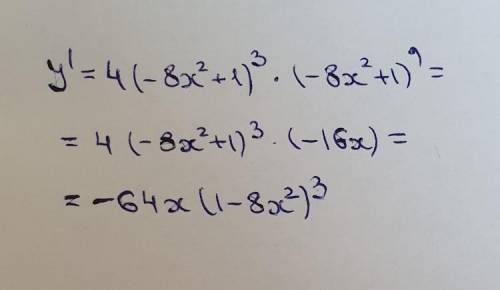 y' = 4(-8x²+1)³ · (-8x²+1)' =
= 4(-8x²+1)³ · (-16x) =
= -64x(1-8x²)³